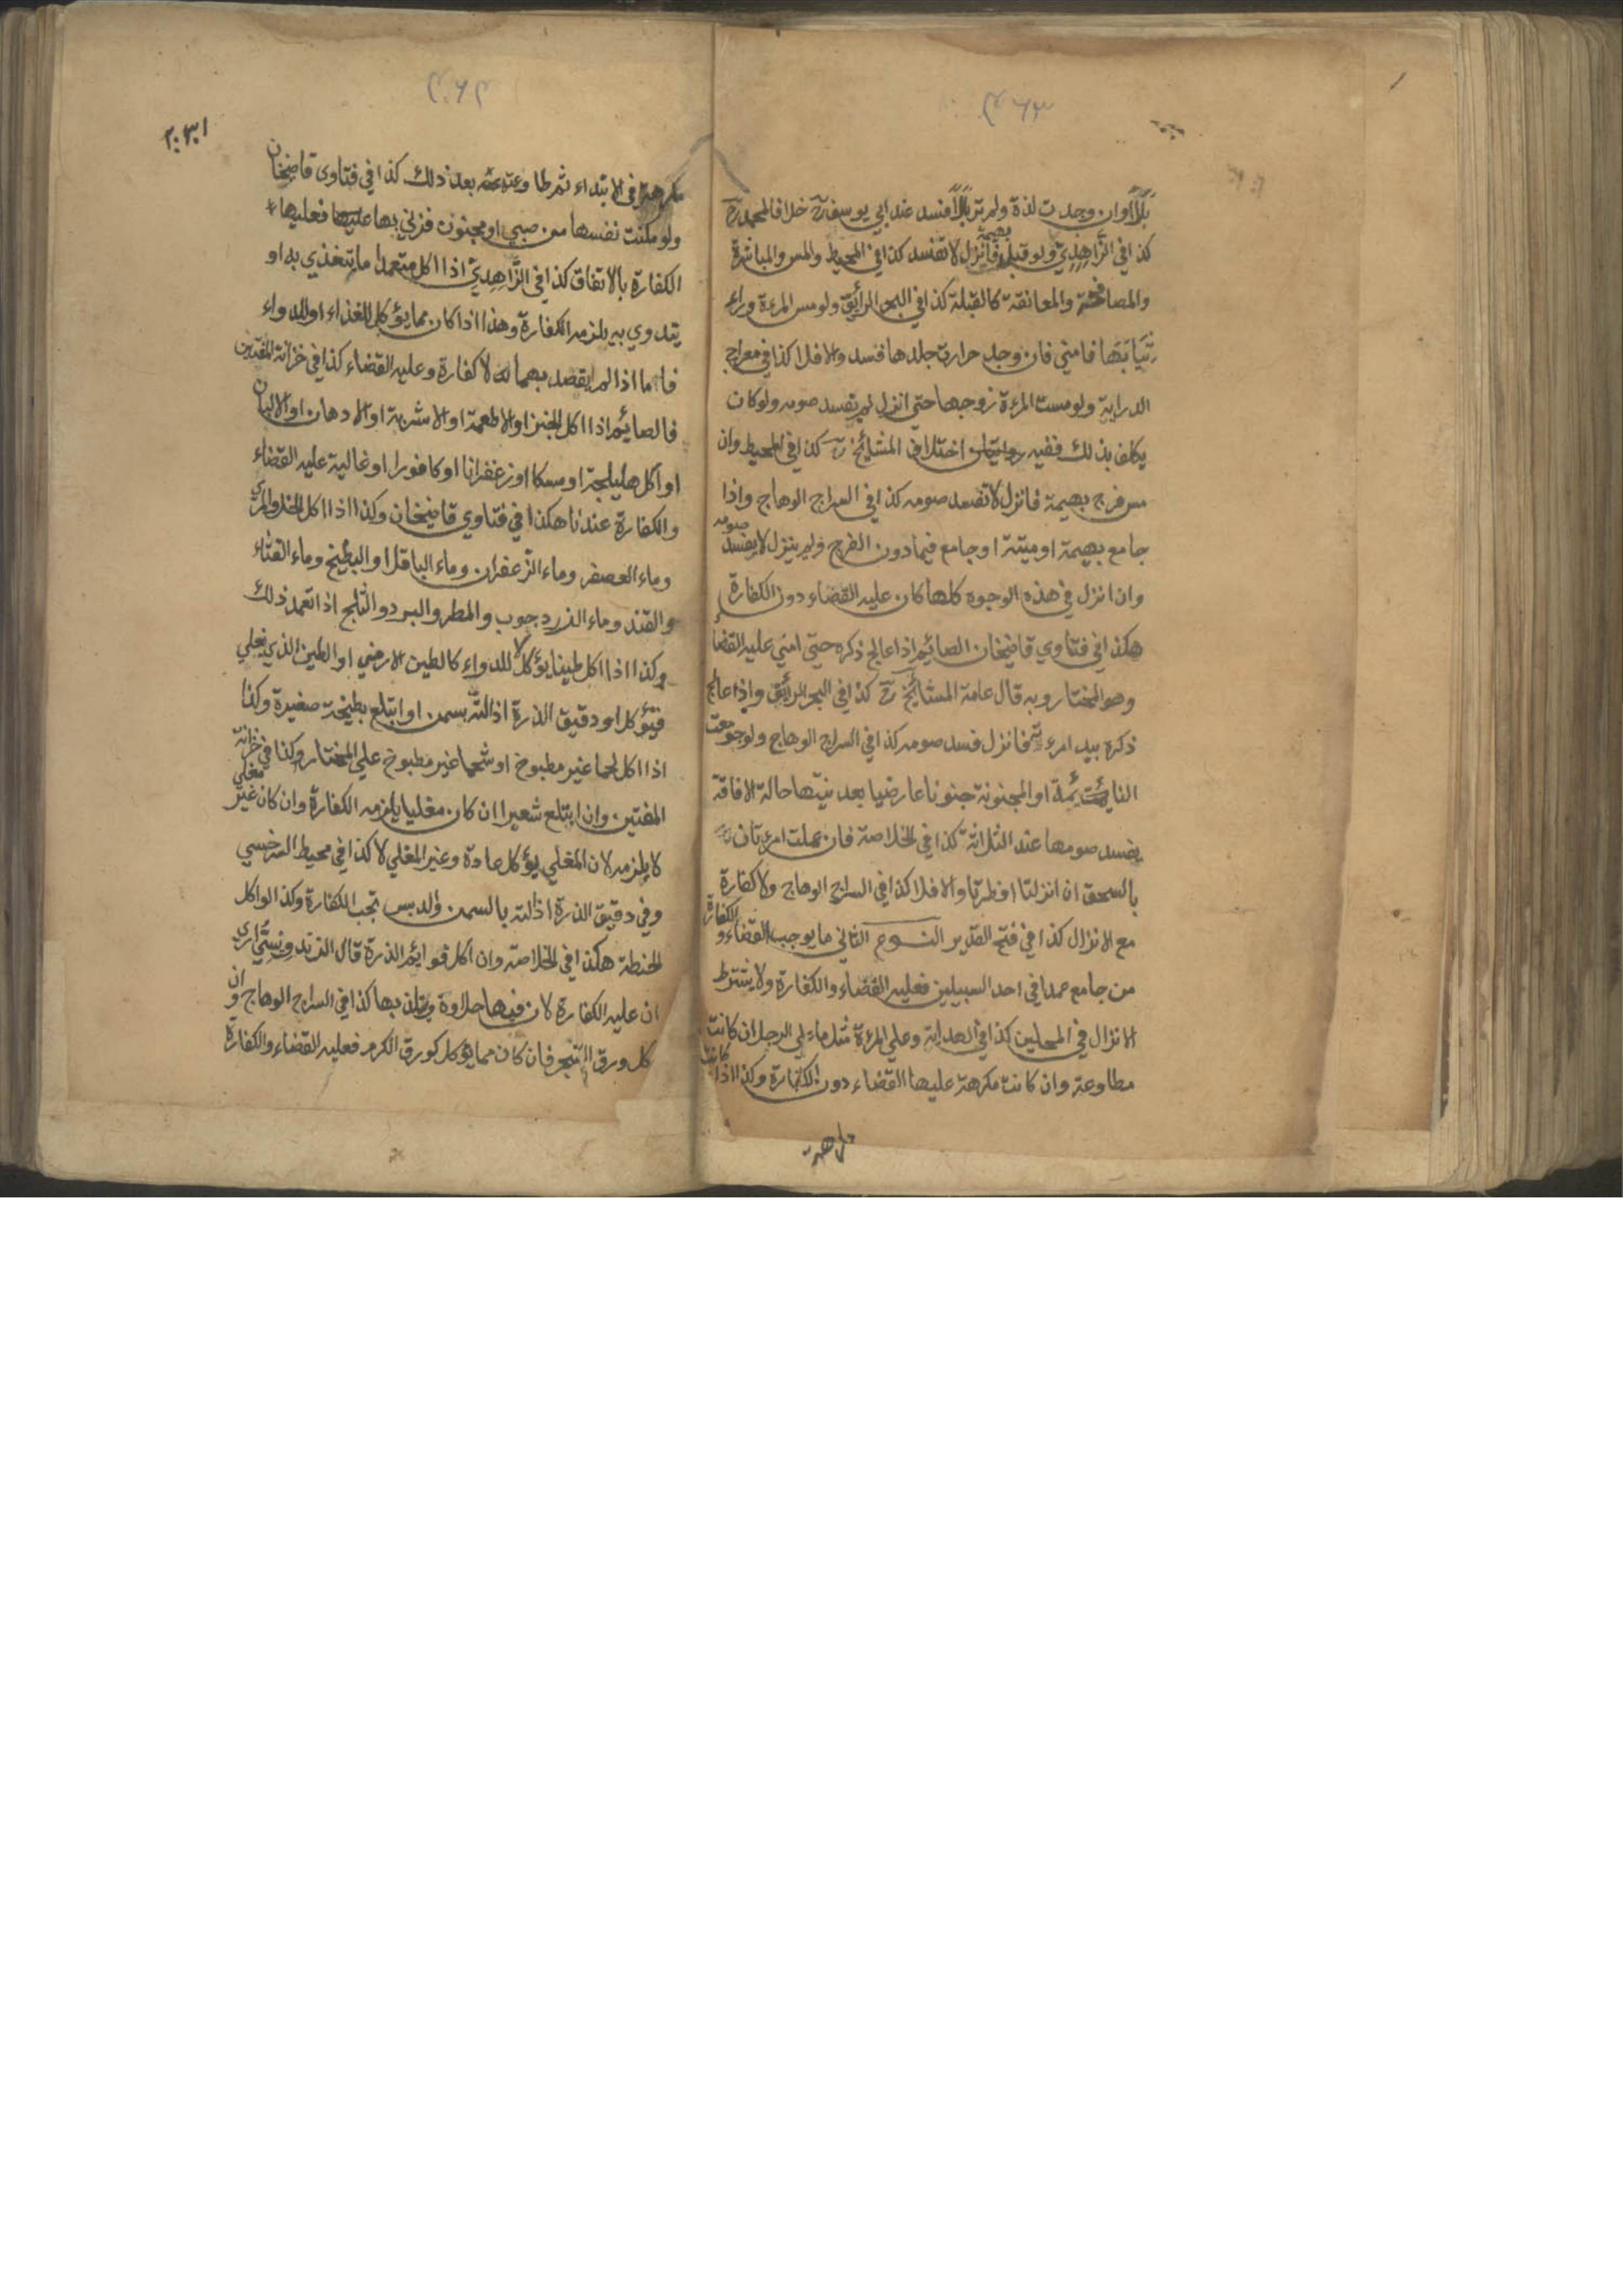 ٤٦٣
بَلَلًا وان وجدت لذة ولم تر بَلَلًا فسد عند ابي يوسف رح خلافا لمحمد رح
كذا في الزاهدي ولو قبل بهيمة فانزل لا تفسد كذا في المحيط والمس والمباشرة
والمصافحة والمعانقة كالقبلة كذا في البحر الرائق ولو مس المرءة وراء
ثيابها فامني فان وجد حرارة جلدها فسد والا فلا كذا في معراج
الدراية ولو مست المرءة زوجها حتي انزل لم تفسد صومه ولو كان
يكلف بذلك ففيه اختلاف المشائخ رح كذا في المحيط وان
مس فرج بهيمة فانزل لا تفسد صومه كذا في السراج الوهاج واذا
جامع بهيمة او ميتة او جامع فيما دون الفرج ولم ينزل لا يفسد صومه
وان انزل في هذه الوجوه كلها كان عليه القضاء دون الكفارة
هكذا في فتاوي قاضيخان الصائم اذا عالج ذكره حتي امني عليه القضا
وهو المختار وبه قال عامة المشائخ رح كذا في البحر الرائق واذا عالج
ذكره بيد امرءته فانزل فسد صومه كذا في السراج الوهاج ولو جومعت
النائمة او المجنونة جنونا عارضيا بعد نيتها حالة الافاقة
يفسد صومها عند الثلاثة كذا في الخلاصة فان عملت امرءتان
بالسحق ان انزلتا افطرتا والا فلا كذا في السراج الوهاج ولا كفارة
مع الانزال كذا في فتح القدير النوع الثاني ما يوجب القضاء و الكفارة
من جامع عمدا في احد السبيلين فعليه القضاء والكفارة ولا يشترط
الانزال في المحلين كذا في الهداية وعلي المرءة مثل ما علي الرجل ان كانت
مطاوعة وان كانت مكرهة عليها القضاء دون الكفارة وكذا اذا كانت
مكرهة
٤٦٤
مكرهة في الابتداء ثم طاوعته بعد ذلك كذا في فتاوى قاضيخان
ولو مكنت نفسها من صبي او مجنون فزني بها فعليها
الكفارة بالاتفاق كذا في الزَّاهِدِيّ اذا اكل متعمدا ما يتغذي به او
يتدوي به يلزمه الكفارة وهذا اذا كان مما يؤكل للغذاء او للدواء
فاما اذا لم يقصد بهما لا كفارة وعليه القضاء كذا في خزانة المفتين
فالصائم اذا اكل الخبز او الاطعمة او الاشربة او الادهان او الالبان
او اكل هليلجة او مسكا او زعفرانا او كافورا او غالية عليه القضاء
والكفارة عندنا هكذا في فتاوي قاضيخان وكذا اذا اكل الخل والمري
وماء العصفر وماء الزعفران وماء الباقلا والبطيخ وماء القثاء
والقند وماء الزرد جوب والمطر والبرد والثلج اذا تعمد ذلك
وكذا اذا اكل طينا يؤكل للدواء كالطين الارمني او الطين الذي يغلي
فيؤكل او دقيق الذرة اذا لته بسمن او ابتلع بطيخة صغيرة وكذا
اذا اكل لحما غير مطبوخ او شحما غير مطبوخ علي المختار وكذا في خزانة
المفتين وان ابتلع شعيرا ان كان مغليا يلزمه الكفارة وان كان غير مغلي
لا يلزمه لان المغلي يؤكل عادة وغير المغلي لا كذا في محيط السرخسي
وفي دقيق الذرة اذا لته بالسمن والدبس تجب الكفارة وكذا لو اكل
الحنطة هكذا في الخلاصة وان اكل قوائم الذرة قال الزندويستي ارى
ان عليه الكفارة لان فيها حلاوة ويتلذ بها كذا في السراج الوهاج و ان
كل ورق الشجر فان كان مما يؤكل كورق الكرم فعليه القضاء والكفارة